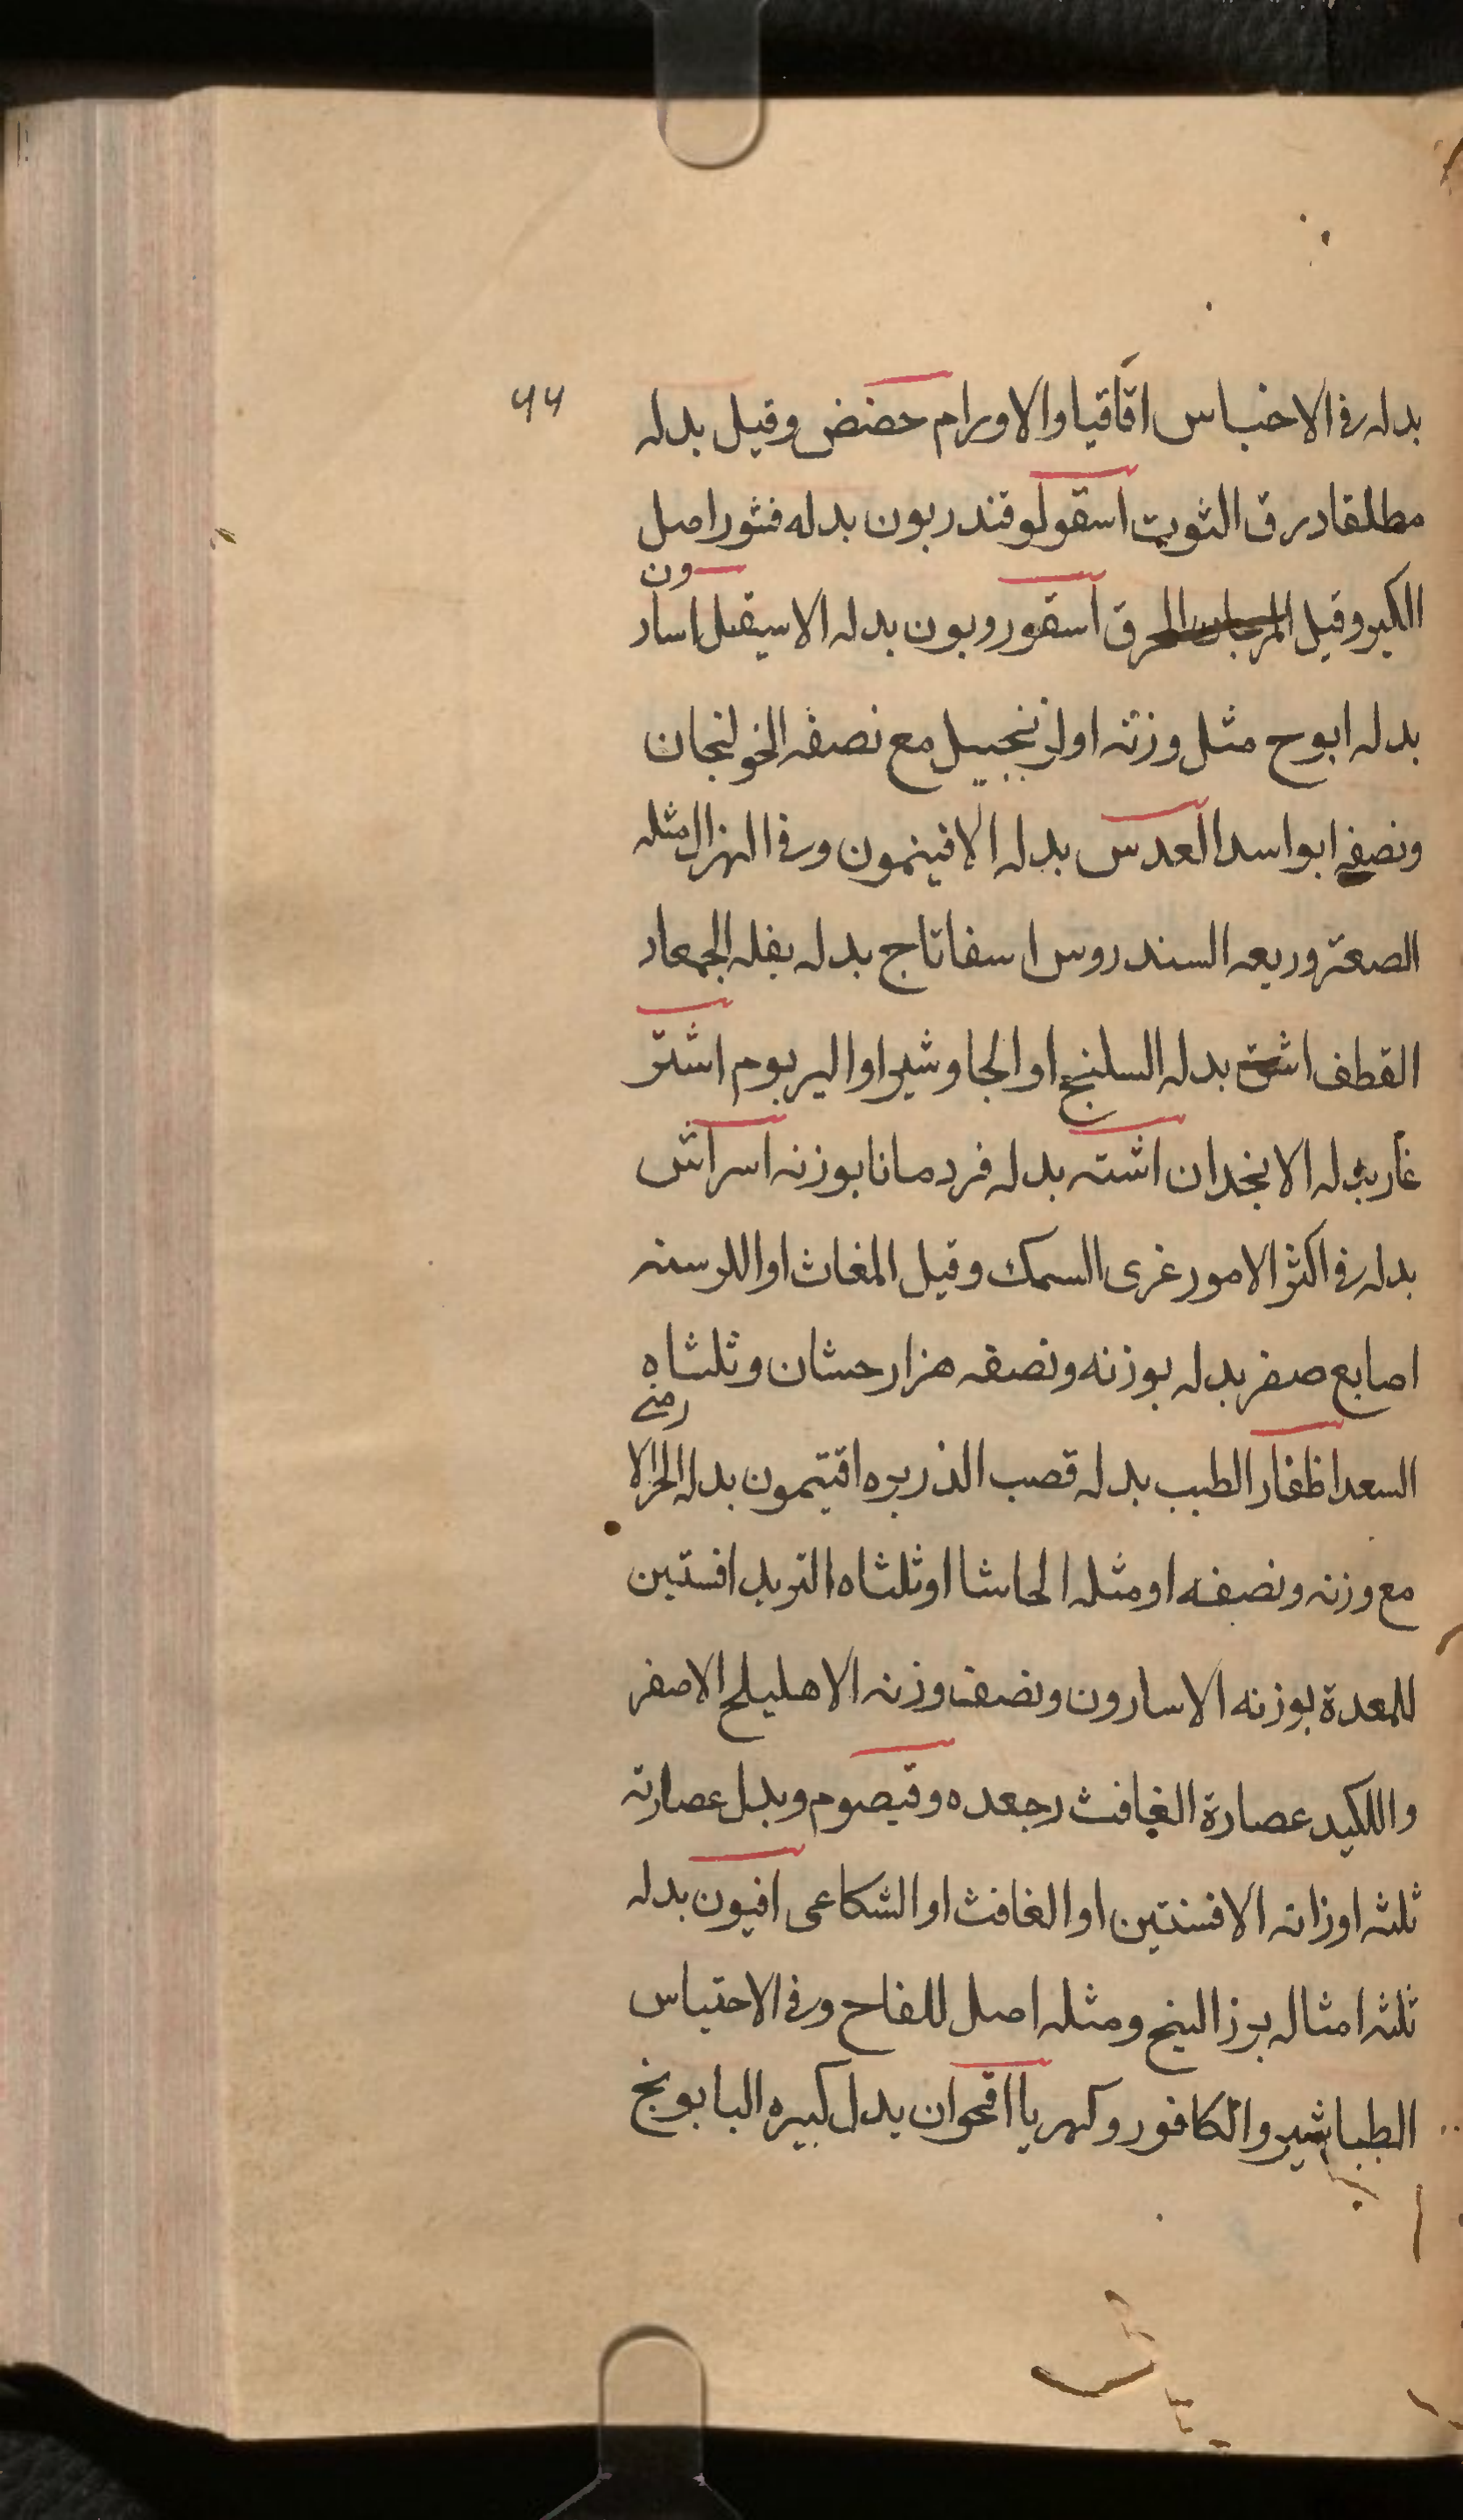 ٤٤
بدله فى الاحنباس اقاقيا والاورام حضض وقيل بدله
مطلقا درق التوت اسقولوقندريون بدله قشور اصل
الكبر وقيل المرجان المحرق اسقوروبون بدله الاسيقيل اسارون
بدله ابوج مثل وزنه او زنجبيل مع نصفه الخولنجان
ونصفه ابواسد العدس بدله الافيثمون وفى الهزال مثله
الصعتر وربعه السندروس اسفاناج بدله بقله الجمعاد
القطف اشق بدله السلنج او الجاوشير او اليربوم اشتر
غار بدله الانجدان اشته بدله قردمانا بوزنه اسراش
بدله فى اكثر الامور غرى السمك وقيل المغاث او اللرسنه
اصابع صفر بدله بوزنه ونصفه هزار حسان وثلثاه
السعد اظفار الطيب بدله قصب الذريره افتيمون بدله الحجر الارمنى
مع وزنه ونصفه او مثله الحاشا او ثلثاه التربد افستين
للمعدة بوزنه الاسارون ونصف وزنه الاهليلج الاصفر
واللكبد عصارة الغافث رجعده وقيصوم وبدل عصارته
ثلثه اوزانه الافسنتين او الغافث او الشكاعى افيون بدله
ثلثه امثاله برز البنج ومثله اصل للفاح وفى الاحتباس
الطباشير والكافور وكهربا اقحوان بدل كبيره البابونج